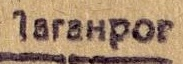 Таганрог